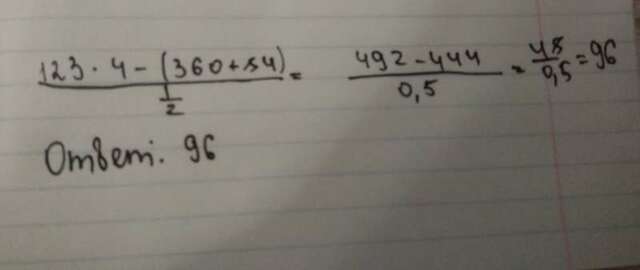 (123 · 4 − (360 + 84)) / (1/2) = (492 − 444) / 0,5 = 48 / 0,5 = 96
Ответ: 96